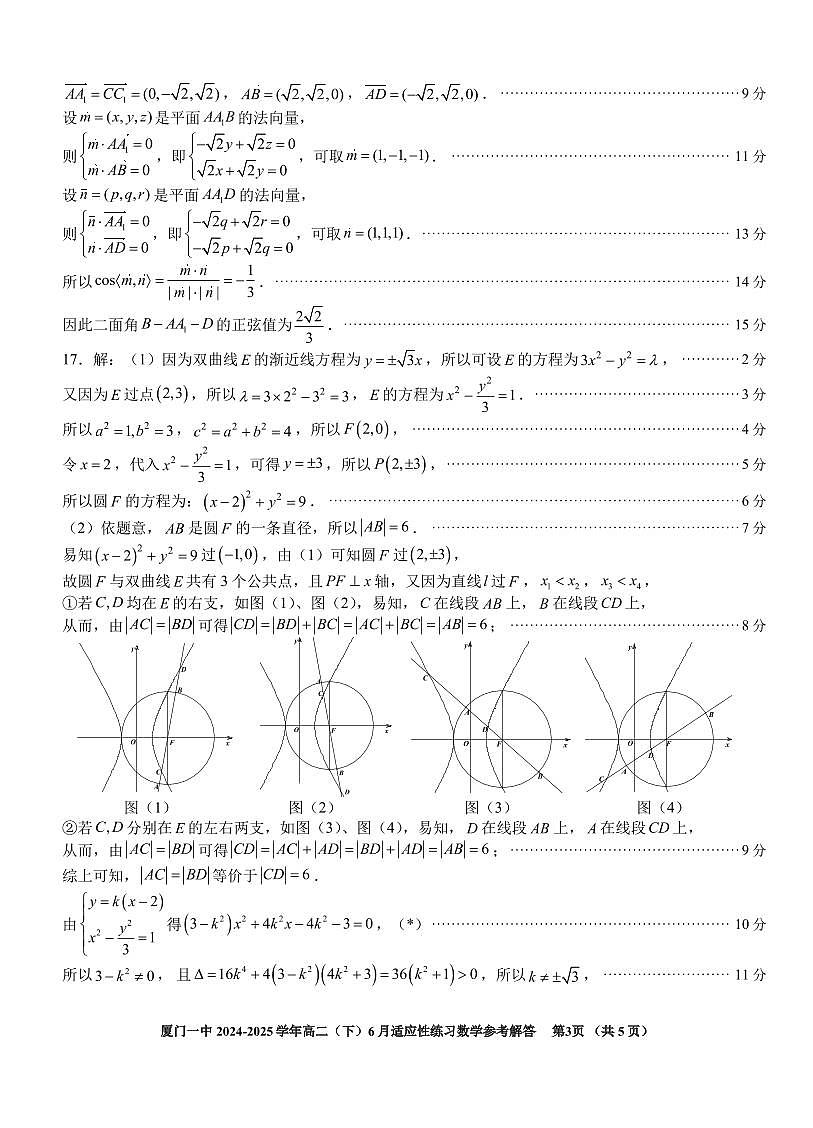 $\overrightarrow{AA_1}=\overrightarrow{CC_1}=(0,-\sqrt{2},\sqrt{2})$，$\overrightarrow{AB}=(\sqrt{2},\sqrt{2},0)$，$\overrightarrow{AD}=(-\sqrt{2},\sqrt{2},0)$．…………9分
设$\vec{m}=(x,y,z)$是平面$AA_1B$的法向量，
则$\begin{cases}\vec{m}\cdot\overrightarrow{AA_1}=0\\\vec{m}\cdot\overrightarrow{AB}=0\end{cases}$，即$\begin{cases}-\sqrt{2}y+\sqrt{2}z=0\\\sqrt{2}x+\sqrt{2}y=0\end{cases}$，可取$\vec{m}=(1,-1,-1)$．…………11分
设$\vec{n}=(p,q,r)$是平面$AA_1D$的法向量，
则$\begin{cases}\vec{n}\cdot\overrightarrow{AA_1}=0\\\vec{n}\cdot\overrightarrow{AD}=0\end{cases}$，即$\begin{cases}-\sqrt{2}q+\sqrt{2}r=0\\-\sqrt{2}p+\sqrt{2}q=0\end{cases}$，可取$\vec{n}=(1,1,1)$．…………13分
所以$\cos\langle\vec{m},\vec{n}\rangle=\frac{\vec{m}\cdot\vec{n}}{|\vec{m}|\cdot|\vec{n}|}=-\frac{1}{3}$．…………14分
因此二面角$B-AA_1-D$的正弦值为$\frac{2\sqrt{2}}{3}$．…………15分
17．解：（1）因为双曲线$E$的渐近线方程为$y=\pm\sqrt{3}x$，所以可设$E$的方程为$3x^2-y^2=\lambda$，…………2分
又因为$E$过点$(2,3)$，所以$\lambda=3\times2^2-3^2=3$，$E$的方程为$x^2-\frac{y^2}{3}=1$．…………3分
所以$a^2=1,b^2=3$，$c^2=a^2+b^2=4$，所以$F(2,0)$，…………4分
令$x=2$，代入$x^2-\frac{y^2}{3}=1$，可得$y=\pm3$，所以$P(2,\pm3)$，…………5分
所以圆$F$的方程为：$(x-2)^2+y^2=9$．…………6分
（2）依题意，$AB$是圆$F$的一条直径，所以$|AB|=6$．…………7分
易知$(x-2)^2+y^2=9$过$(-1,0)$，由（1）可知圆$F$过$(2,\pm3)$，
故圆$F$与双曲线$E$共有3个公共点，且$PF\perp x$轴，又因为直线$l$过$F$，$x_1<x_2$，$x_3<x_4$，
①若$C,D$均在$E$的右支，如图（1）、图（2），易知，$C$在线段$AB$上，$B$在线段$CD$上，
从而，由$|AC|=|BD|$可得$|CD|=|BD|+|BC|=|AC|+|BC|=|AB|=6$；…………8分
y D B O F x C A
y C O F x B D
y C A D O F x B
y B O F x D A C
图（1） 图（2） 图（3） 图（4）
②若$C,D$分别在$E$的左右两支，如图（3）、图（4），易知，$D$在线段$AB$上，$A$在线段$CD$上，
从而，由$|AC|=|BD|$可得$|CD|=|AC|+|AD|=|BD|+|AD|=|AB|=6$；…………9分
综上可知，$|AC|=|BD|$等价于$|CD|=6$．
由$\begin{cases}y=k(x-2)\\x^2-\frac{y^2}{3}=1\end{cases}$得$(3-k^2)x^2+4k^2x-4k^2-3=0$，（*）…………10分
所以$3-k^2\neq0$，且$\Delta=16k^4+4(3-k^2)(4k^2+3)=36(k^2+1)>0$，所以$k\neq\pm\sqrt{3}$，…………11分
厦门一中2024-2025学年高二（下）6月适应性练习数学参考解答 第3页 （共5页）